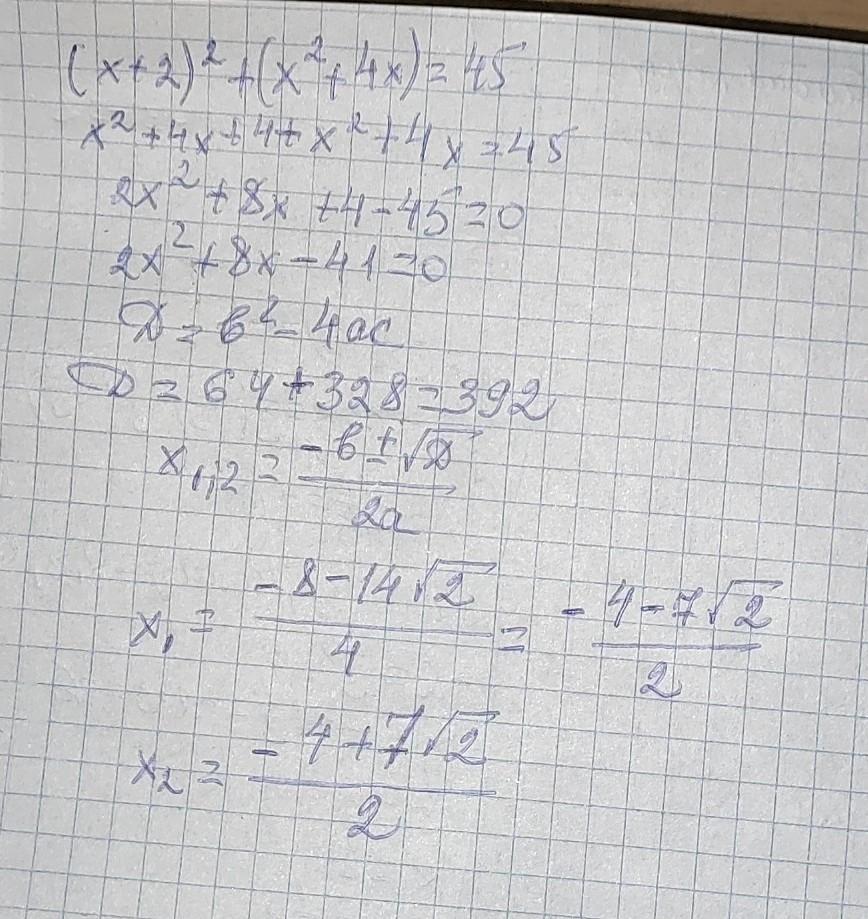 (x+2)² + (x² + 4x) = 45
x² + 4x + 4 + x² + 4x = 45
2x² + 8x + 4 - 45 = 0
2x² + 8x - 41 = 0
D = b² - 4ac
D = 64 + 328 = 392
x₁,₂ = (-b ± √D) / 2a
x₁ = (-8 - 14√2) / 4 = (-4 - 7√2) / 2
x₂ = (-4 + 7√2) / 2